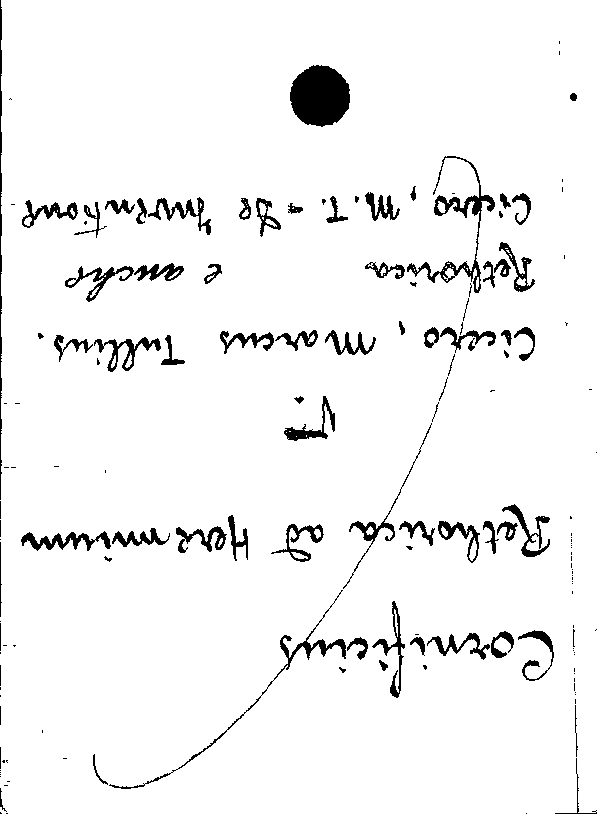 Cornificius
Rethorica ad Herennium
V.
Cicero, Marcus Tullius.
Rethorica e anche
Cicero, M. T. - De Inventione